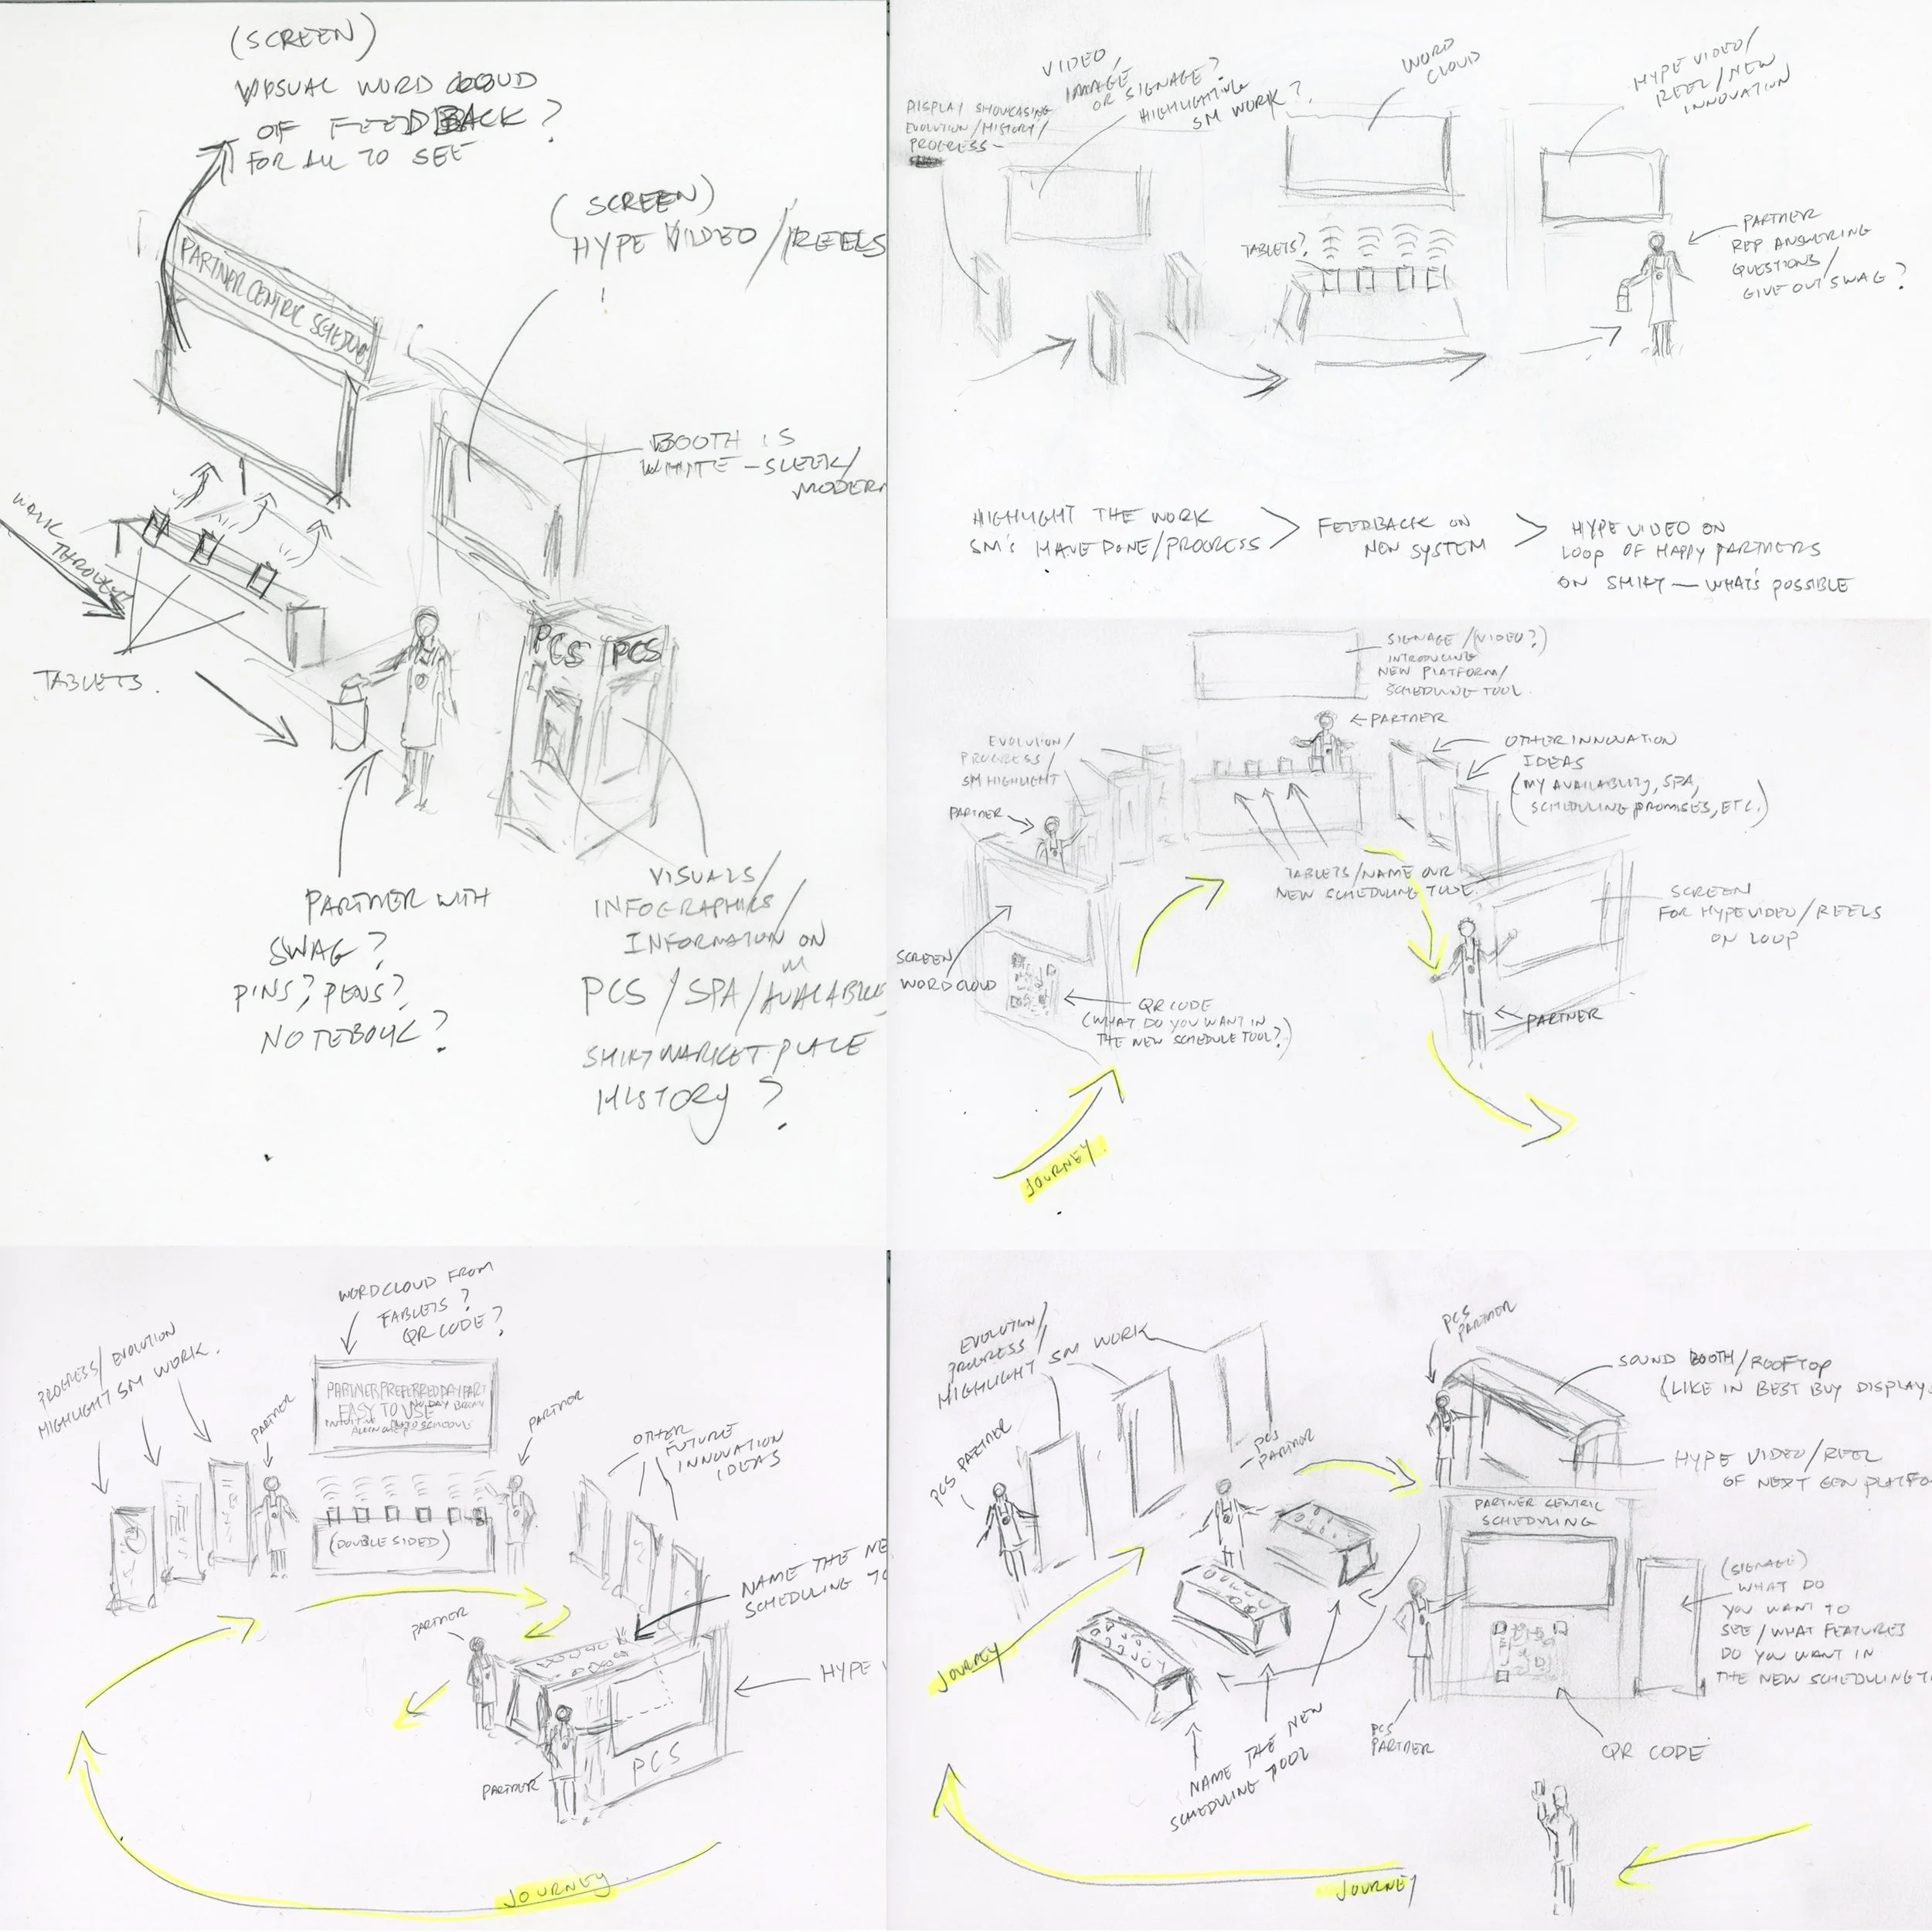 (SCREEN)
VISUAL WORD CLOUD
OF FEEDBACK?
FOR ALL TO SEE
(SCREEN)
HYPE VIDEO/REELS
PARTNER CENTRIC SCHEDUL
BOOTH IS
WHITE - SLEEK/
MODERN
WALK
THROUGH
TABLETS.
PCS PCS
PARTNER WITH
SWAG?
PINS? PENS?
NOTEBOOK?
VISUALS/
INFOGRAPHICS/
INFORMATION ON
PCS/SPA/MY AVAILABILI
SHIFT MARKETPLACE
HISTORY?
DISPLAY SHOWCASING
EVOLUTION/HISTORY/
PROGRESS-
VIDEO,
IMAGE
OR SIGNAGE?
HIGHLIGHTING
SM WORK?
WORD
CLOUD
HYPE VIDEO/
REEL/NEW
INNOVATION
TABLETS?
PARTNER
REP ANSWERING
QUESTIONS/
GIVE OUT SWAG?
HIGHLIGHT THE WORK
SM'S HAVE DONE/PROGRESS
>
FEEDBACK ON
NEW SYSTEM
>
HYPE VIDEO ON
LOOP OF HAPPY PARTNERS
ON SHIFT — WHAT'S POSSIBLE
SIGNAGE/(VIDEO?)
INTRODUCING
NEW PLATFORM/
SCHEDULING TOOL
PARTNER
EVOLUTION/
PROGRESS/
SM HIGHLIGHT
PARTNER
OTHER INNOVATION
IDEAS
(MY AVAILABILITY, SPA,
SCHEDULING PROMISES, ETC.)
TABLETS/NAME OUR
NEW SCHEDULING TOOL
SCREEN
FOR HYPE VIDEO/REELS
ON LOOP
SCREEN
WORD CLOUD
QR CODE
(WHAT DO YOU WANT IN
THE NEW SCHEDULE TOOL?)
PARTNER
JOURNEY
WORD CLOUD FROM
TABLETS?
QR CODE?
PROGRESS/EVOLUTION
HIGHLIGHT SM WORK.
PARTNER
PARTNER PREFERRED DAY PART
EASY TO USE
PARTNER
OTHER
FUTURE
INNOVATION
IDEAS
(DOUBLE SIDED)
NAME THE NE
SCHEDULING TO
PARTNER
HYPE V
PCS
PARTNER
JOURNEY
EVOLUTION/
PROGRESS/
HIGHLIGHT SM WORK
PCS
PARTNER
SOUND BOOTH/ROOFTOP
(LIKE IN BEST BUY DISPLAYS
PCS PARTNER
PCS
PARTNER
HYPE VIDEO/REEL
OF NEXT GEN PLATFO
PARTNER CENTRIC
SCHEDULING
(SIGNAGE)
WHAT DO
YOU WANT TO
SEE/WHAT FEATURES
DO YOU WANT IN
THE NEW SCHEDULING T
JOURNEY
NAME THE NEW
SCHEDULING TOOL
PCS
PARTNER
QR CODE
JOURNEY